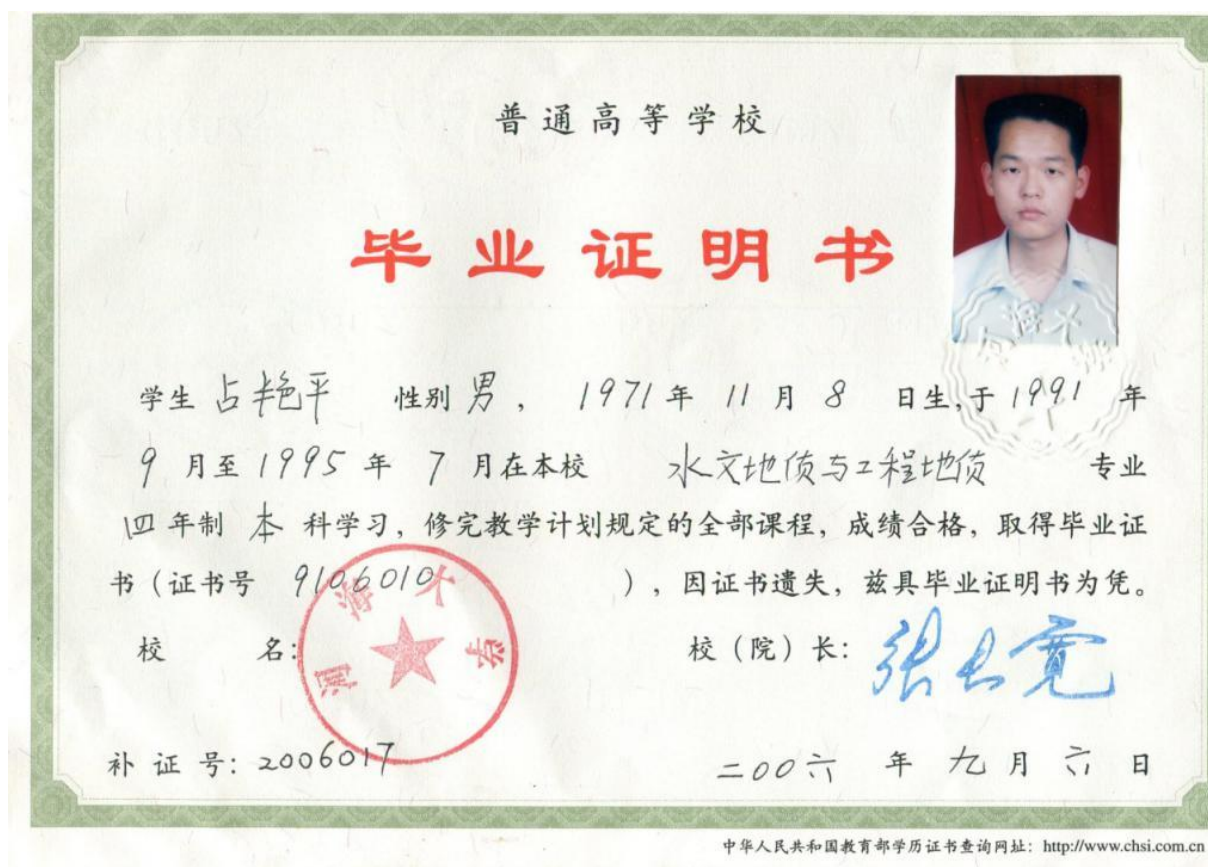 普通高等学校
毕业证明书
学生 占艳平 性别 男， 1971 年 11 月 8 日生,于 1991 年
9 月至 1995 年 7 月在本校 水文地质与工程地质 专业
四 年制 本 科学习，修完教学计划规定的全部课程，成绩合格，取得毕业证
书（证书号 9106010 ），因证书遗失，兹具毕业证明书为凭。
校 名: 河海大学 校（院）长: 张长宽
补证号: 2006017 二00六 年 九 月 六 日
中华人民共和国教育部学历证书查询网址：http://www.chsi.com.cn